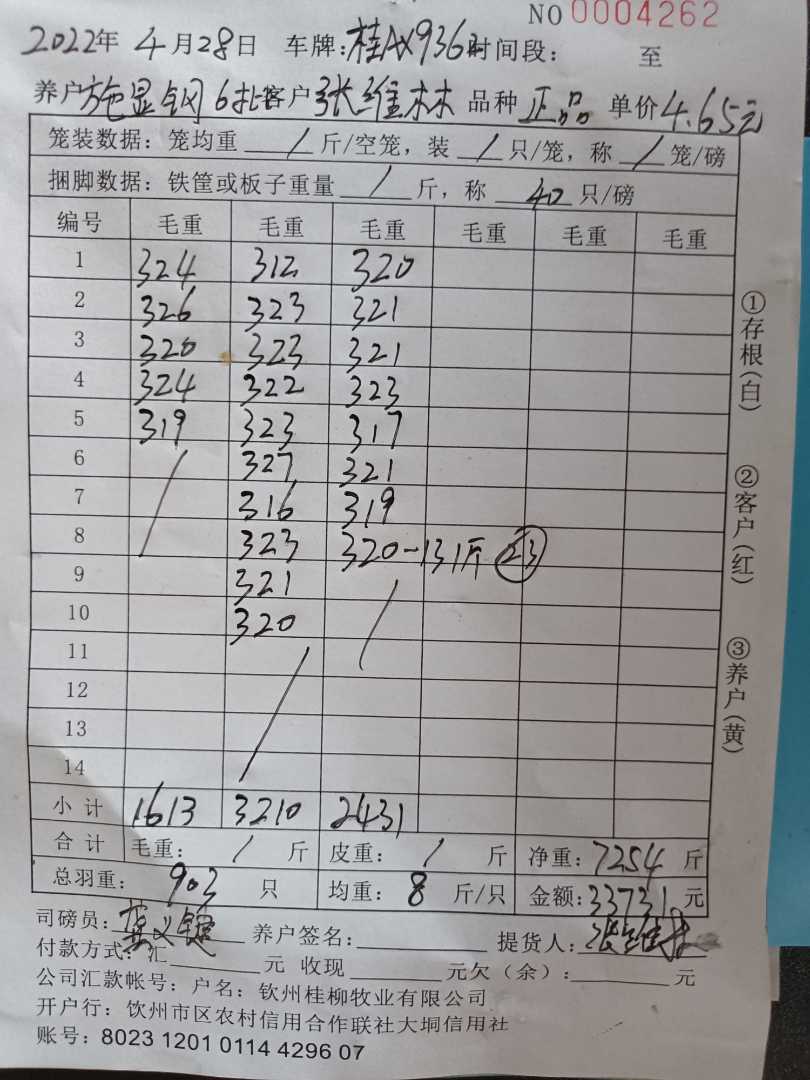 NO 0004262
2022年 4月28日 车牌：桂AX936 时间段： 至
养户 施显钢 6批 客户 张维林 品种 正品 单价 4.65元
笼装数据：笼均重 / 斤/空笼，装 / 只/笼，称 / 笼/磅
捆脚数据：铁筐或板子重量 / 斤，称 40 只/磅
编号 毛重 毛重 毛重 毛重 毛重 毛重
1 324 312 320
2 326 323 321
3 320 323 321
4 324 322 323
5 319 323 317
6 327 321
7 316 319
8 323 320-131斤 23
9 321
10 320
11
12
13
14
小计 1613 3210 2431
合计 毛重： / 斤 皮重： / 斤 净重：7254 斤
总羽重： 903 只 均重： 8 斤/只 金额：33731 元
司磅员： 养户签名： 提货人：张维林
付款方式：汇 元 收现 元欠（余）： 元
公司汇款帐号：户名：钦州桂柳牧业有限公司
开户行：钦州市区农村信用合作联社大垌信用社
账号：8023 1201 0114 4296 07
①存根(白)
②客户(红)
③养户(黄)